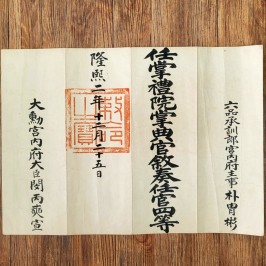 六品承訓郎宮內府主事朴胄彬
任掌禮院掌典官敘奏任官四等
隆熙二年十二月二十五日
勅命之寶
大勳宮內府大臣閔丙奭宣